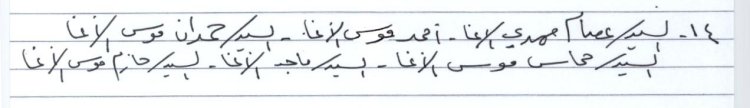 ١٤- السيد/ عصام مهدي الأغا - أحمد موسى الأغا - السيد/ حمدان موسى الأغا
السيد/ حماس موسى الأغا - السيد/ ماجد الأغا - السيد/ حازم موسى الأغا